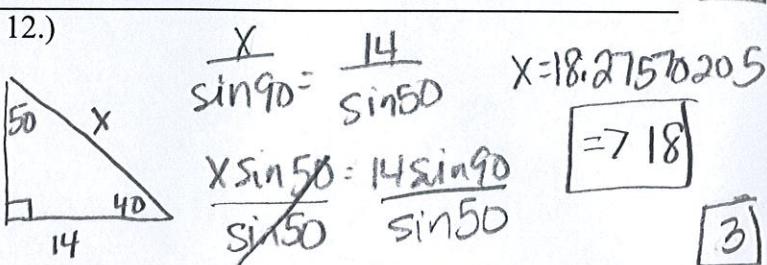 12.)
50
x
40
14
x/sin90 = 14/sin50
x sin50/sin50 = 14 sin90/sin50
x=18.27570205
=> 18
3